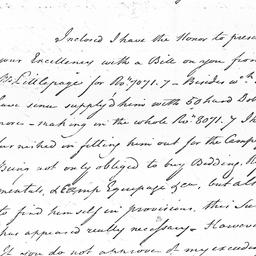 Inclosed I have the Honor to prese
your Excellency with a Bill on you from
Littlepage for 7071.7 – Besides wch I
have since supply'd him with 50 hard Dol
more – making in the whole 8071.7 I
furnished in fitting him out for the Camp
Being not only obliged to buy Bedding, R
mentals, & Camp Equipage &ca, but als
to find himself in provisions, this Su
has appeared really necessary. Howeve
If you do not approve of my exceed